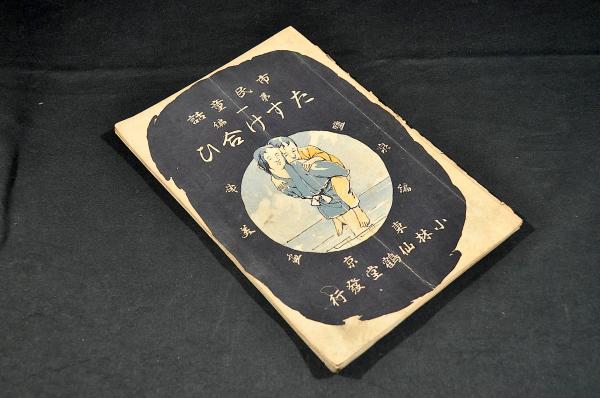 市民童話
第一編
たすけ合ひ
編
美
東京
小林仙鶴堂發行